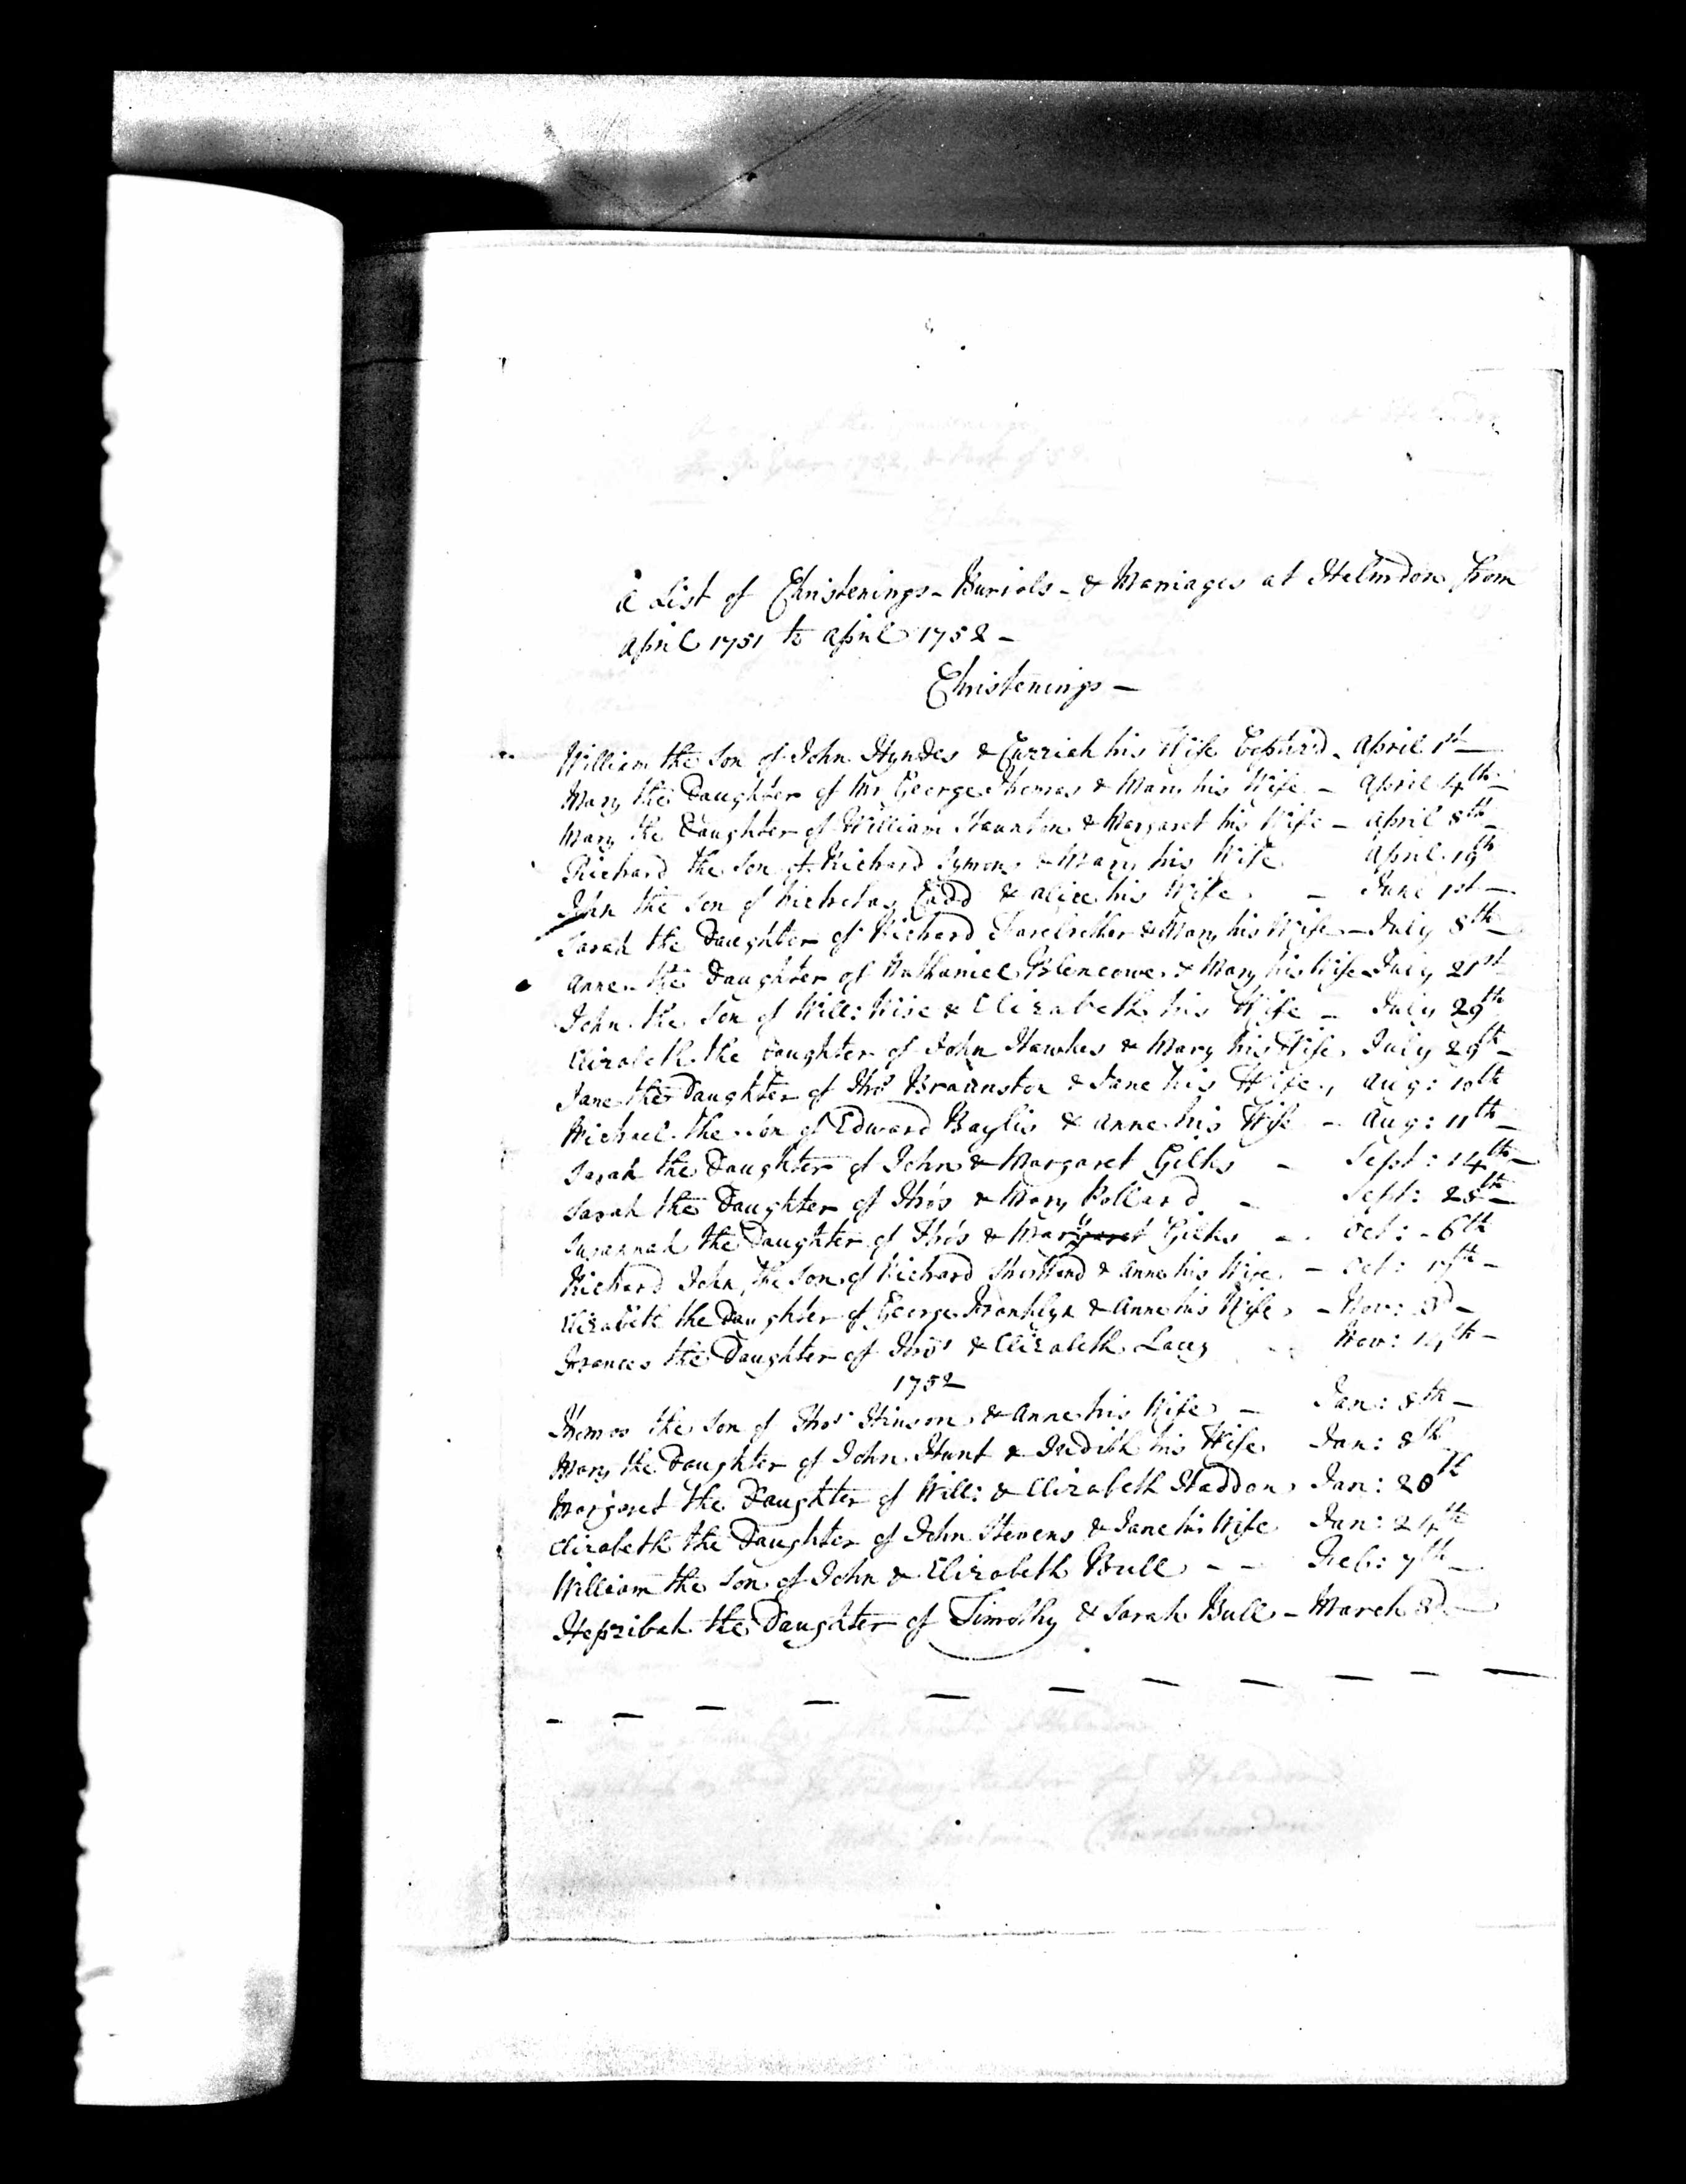 A List of Christenings - Burials - & Marriages at Helmdon from
April 1751 to April 1752 -
Christenings -
William the Son of John Hyndes & Curriah his Wife Baptiz'd - April 1st
Mary the Daughter of Mr George Thomas & Mary his Wife - April 4th -
Mary the Daughter of William Haunton & Margaret his Wife - April 8th
Richard the Son of Richard Symons & Mary his Wife April 19th
John the Son of Nicholas Cadd & Alice his Wife - June 1st -
Sarah the Daughter of Richard & Mary his Wife - July 8th
Anne the Daughter of Nathaniel Blencowe & Mary his Wife July 21st
John the Son of Will: Wise & Elizabeth his Wife - July 29th
Elizabeth the Daughter of John Hawkes & Mary his Wife July 29th -
Jane the Daughter of Thos Braunston & Jane his Wife, Aug: 10th
Michael the Son of Edward Baylis & Anne his Wife - Aug: 11th -
Sarah the Daughter of John & Margaret Gilks - Sept: 14th -
Sarah the Daughter of Thos & Mary Pollard - Sept: 28th
Susannah the Daughter of Thos & Mary Gilks - Oct: 6th
Richard John, the Son of Richard & Anne his Wife - Oct: -
Elizabeth the Daughter of George Franklyn & Anne his Wife - Nov: 3d -
Frances the Daughter of Thos & Elizabeth Lacey Nov: 14th -
1752
Thomas the Son of Thos Hinson & Anne his Wife - Jan: 8th -
Mary the Daughter of John Hunt & Judith his Wife Jan: 8th
Margaret the Daughter of Will: & Elizabeth Haddon Jan: 20th
Elizabeth the Daughter of John Stevens & Jane his Wife Jan: 24th
William the Son of John & Elizabeth Bull - - Feb: 7th -
Hepzibah the Daughter of Timothy & Sarah Bull - March 3d -